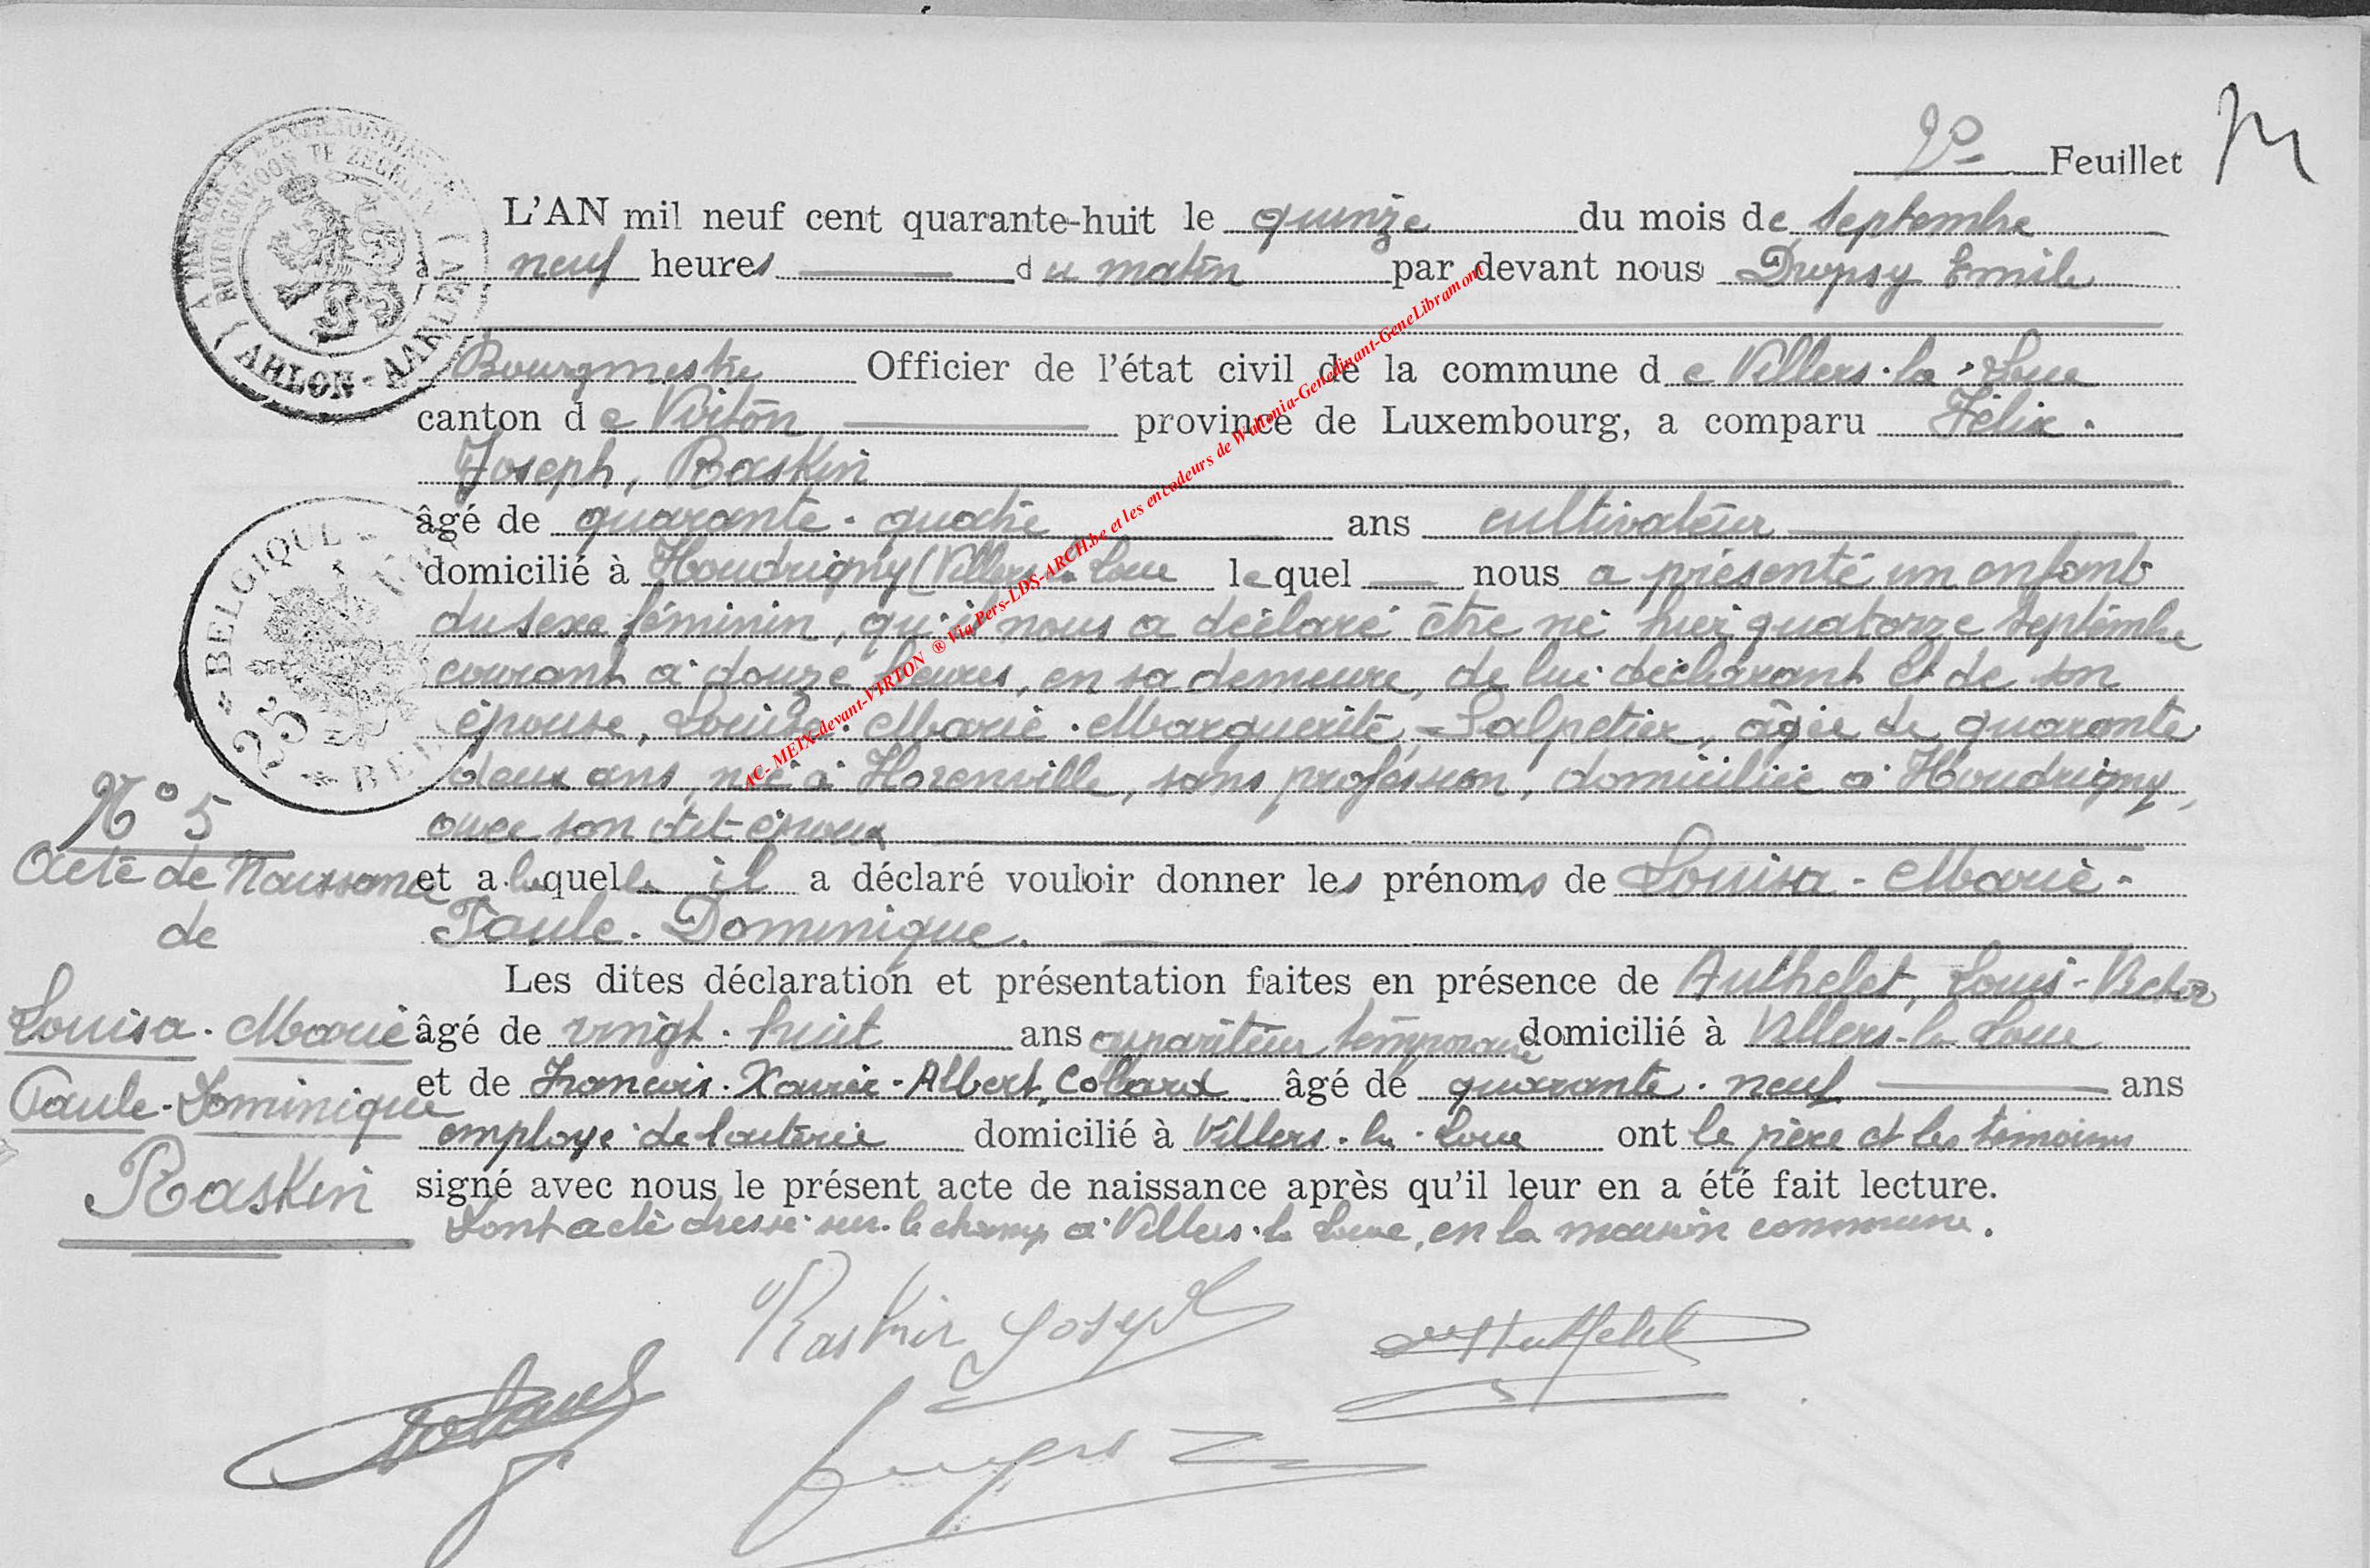 2e Feuillet
L'AN mil neuf cent quarante-huit le quinze du mois de septembre
à neuf heures du matin par devant nous Dropsy Emile
Bourgmestre Officier de l'état civil de la commune de Villers-la-Loue
canton de Virton province de Luxembourg, a comparu Félix-
Joseph, Raskin
âgé de quarante-quatre ans cultivateur
domicilié à Houdrigny (Villers-la-Loue lequel nous a présenté un enfant
du sexe féminin, qu'il nous a déclaré être né hier quatorze septembre
courant à douze heures, en sa demeure, de lui déclarant et de son
épouse, Louise-Marie-Marguerite, Salpetier, âgée de quarante
deux ans, née à Harenville, sans profession, domiciliée à Houdrigny,
avec son dit époux
N° 5
Acte de Naissance
de
Louisa-Marie
Paule-Dominique
Raskin
et a laquelle il a déclaré vouloir donner les prénoms de Louisa-Marie-
Paule-Dominique.
Les dites déclaration et présentation faites en présence de Authelet, Louis-Victor
âgé de vingt-huit ans appariteur temporaire domicilié à Villers-la-Loue
et de Francois-Xavier-Albert, Colard âgé de quarante-neuf ans
employé de laiterie domicilié à Villers-la-Loue ont le père et les témoins
signé avec nous le présent acte de naissance après qu'il leur en a été fait lecture.
Dont acte dressé sur le champ à Villers-la-Loue, en la maison commune.
Raskin Joseph
Authelet
Colard
ARLON-AARLEN
BELGIQUE
25
AC- MEIX-devant-VIRTON ® Via Pers-LDS-ARCH.be et les encodeurs de Wallonia-Genedinant-GeneLibramont